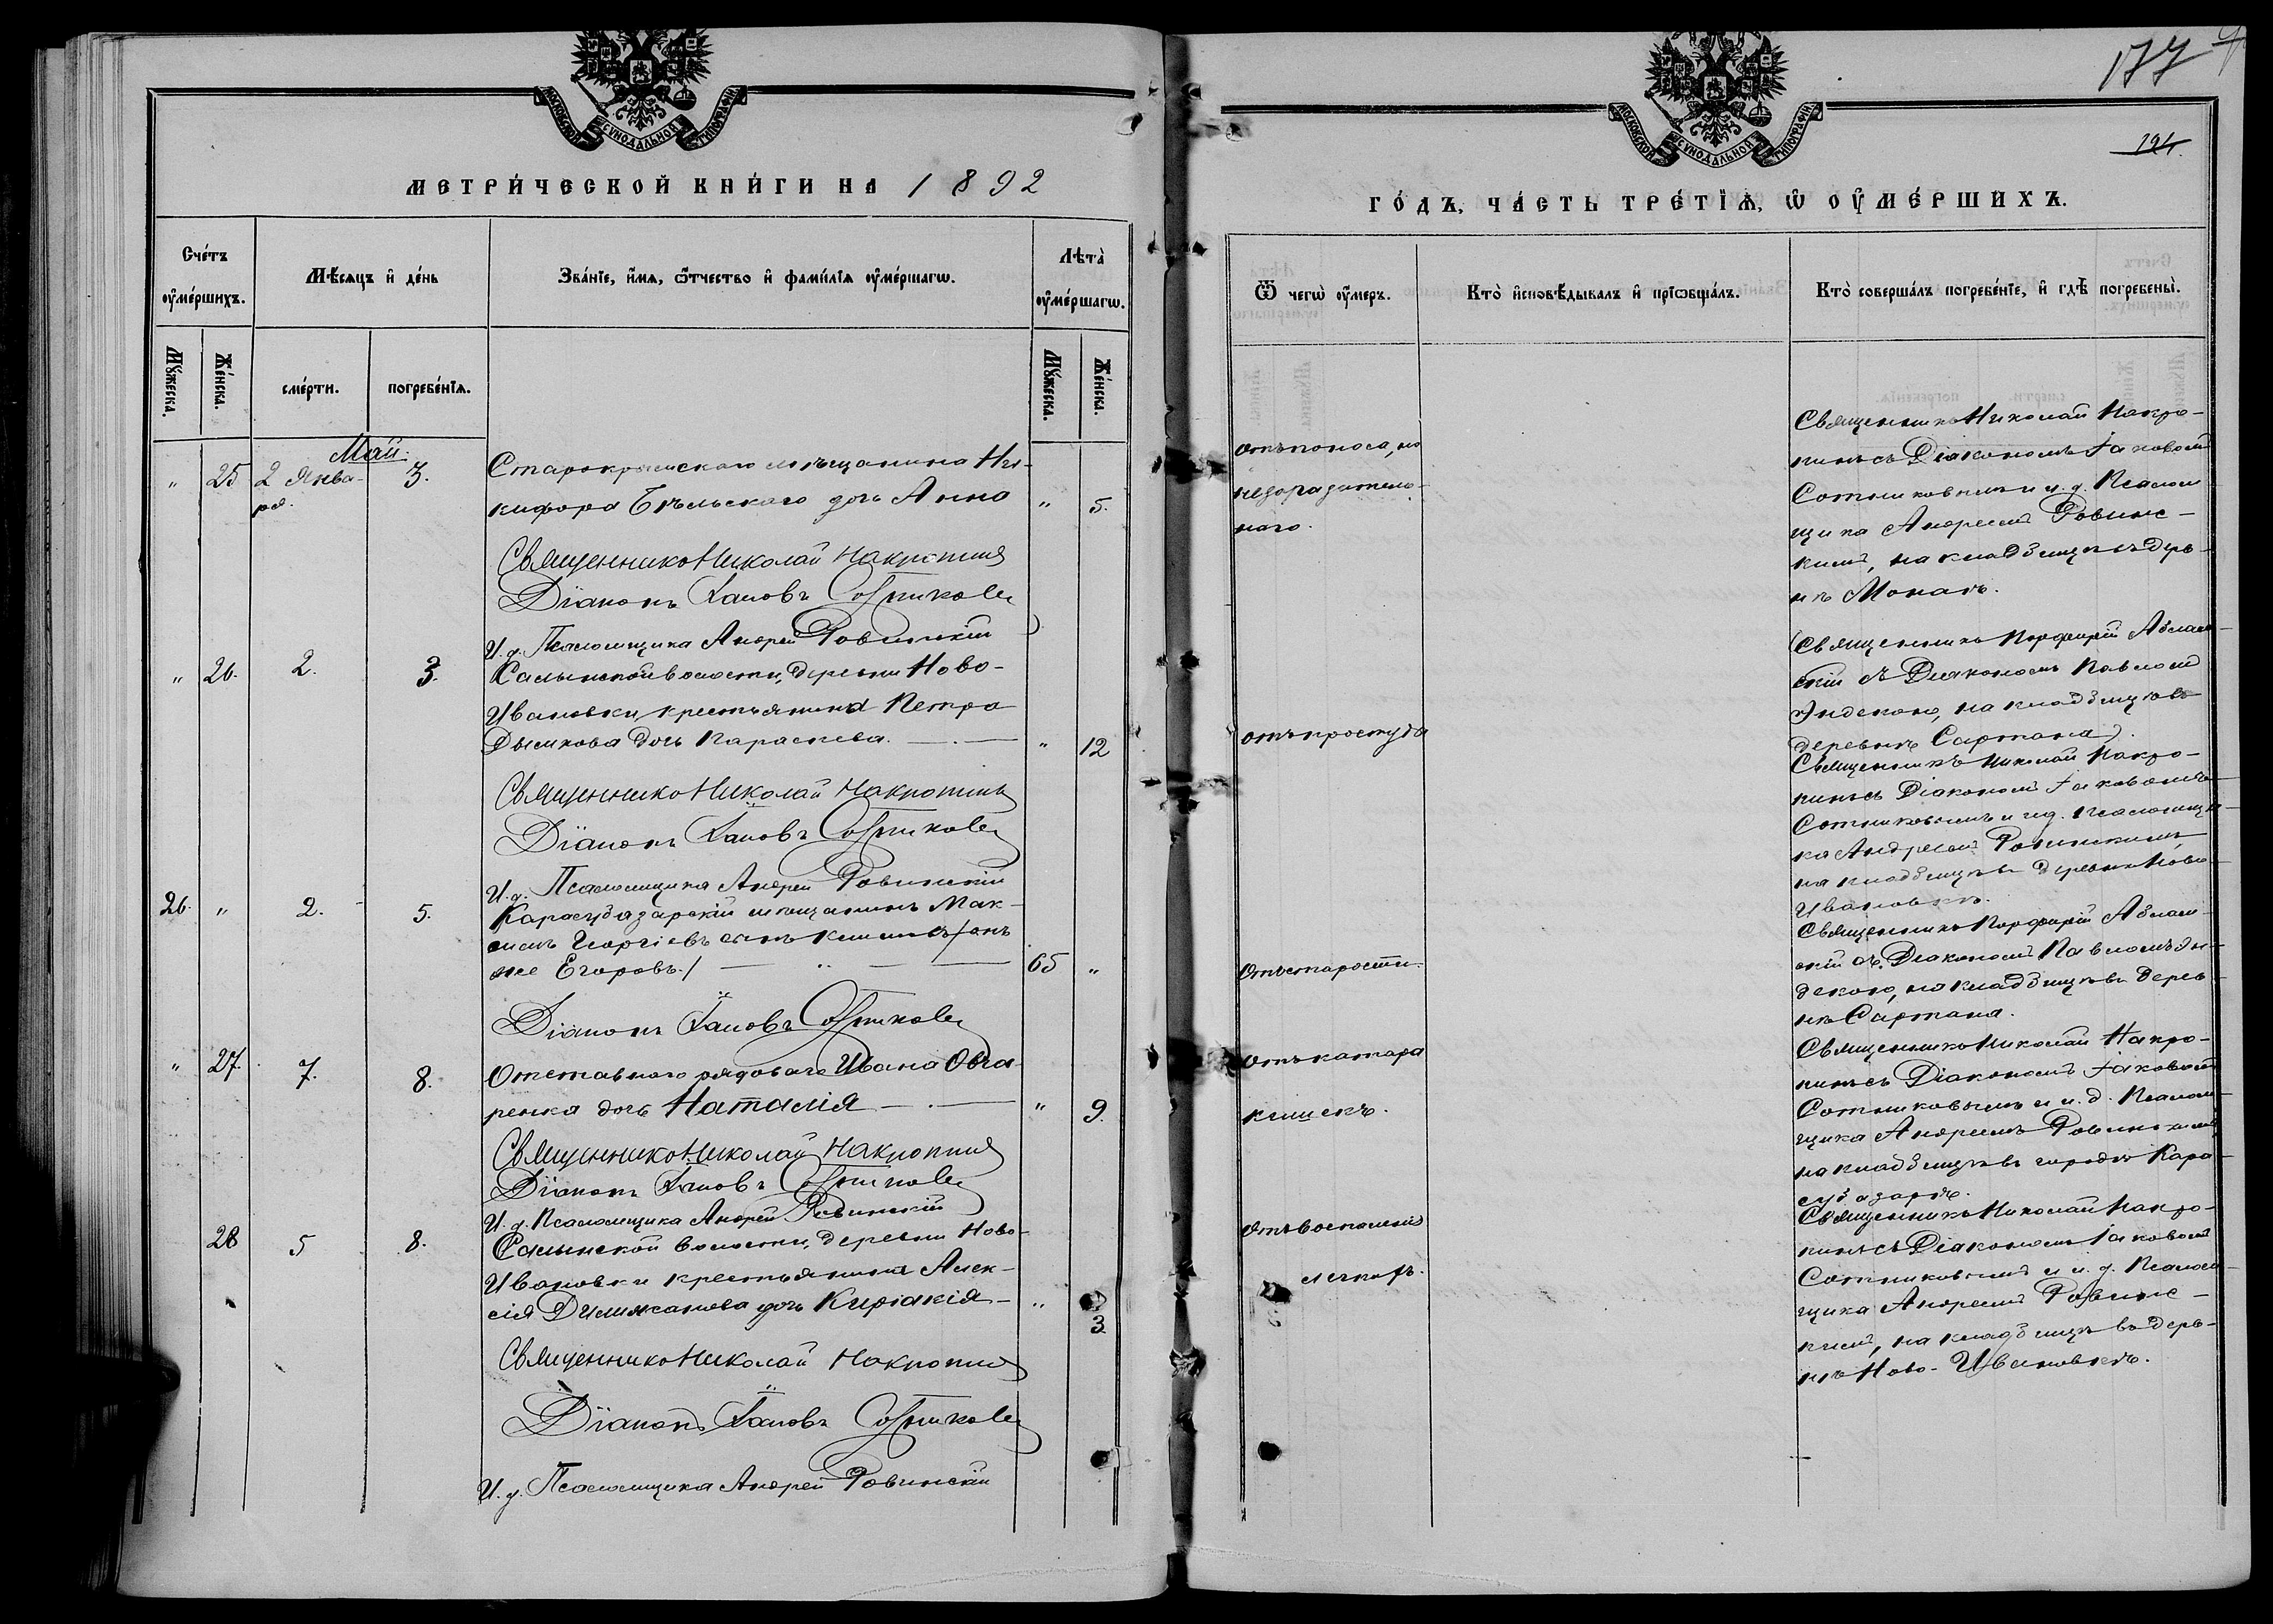 МОСКОВСКОЙ СѴНОДАЛЬНОЙ ТИПОГРАФІИ
МЕТРИ́ЧЕСКОЙ КНИ́ГИ НА 1892
Сче́тъ ѹ҆ме́ршихъ.
Мѣ́сяцъ и҆ де́нь
Зва́нїе, и҆́мя, ѻ҆́тчество и҆ фами́лїѧ ѹ҆ме́ршагѡ.
Лѣта̀ ѹ҆ме́ршагѡ.
Мꙋ́жеска.
Же́нска.
сме́рти.
погребе́нїѧ.
Мꙋ́жеска.
Же́нска.
Май.
" 25 2 Янва- 3. Старокрымскаго мѣщанина Ни-
ря. кифора Бѣльскаго дочь Анна " 5.
Священникъ Николай Накропинъ
Діаконъ Іаковъ Сотниковъ
И. д. Псаломщика Андрей Ровинскій
" 26. 2. 3. Салынской волости, деревни Ново-
Ивановки, крестьянина Петра
Дымкова дочь Параскева. " 12
Священникъ Николай Накропинъ
Діаконъ Іаковъ Сотниковъ
И. д. Псаломщика Андрей Ровинскій
26. " 2. 5. Карасубазарскій мѣщанинъ Мак-
симъ Георгіевъ сынъ /онъ
же Егоровъ./ 65 "
Діаконъ Іаковъ Сотниковъ
" 27. 7. 8. Отставного рядоваго Ивана Овча-
ренка дочь Наталія " 9.
Священникъ Николай Накропинъ
Діаконъ Іаковъ Сотниковъ
И. д. Псаломщика Андрей Ровинскій
28 5 8. Салынской волости, деревни Ново-
Ивановки крестьянина Алек-
сія дочь Киріакія " 3
Священникъ Николай Накропинъ
Діаконъ Іаковъ Сотниковъ
И. д. Псаломщика Андрей Ровинскій
177
124.
МОСКОВСКОЙ СѴНОДАЛЬНОЙ ТИПОГРАФІИ
ГО́ДЪ, ЧА́СТЬ ТРЕ́ТЇѦ, Ѡ҆ ОУ҆МЕ́РШИХЪ.
Ѿ чегѡ̀ ѹ҆́меръ.
Кто̀ и҆сповѣ́дывалъ и҆ прїѡбща́лъ.
Кто̀ соверша́лъ погребе́нїе, и҆ гдѣ̀ погребены̀.
отъ поноса, но
незаразитель-
наго.
Священникъ Николай Накро-
пинъ съ Діакономъ Іаковомъ
Сотниковымъ и и. д. Псалом
щика Андреемъ Ровинс-
кимъ, на кладбищѣ въ дерев-
нѣ
отъ простуды
Священникъ Порфирій
скій съ Діакономъ Павломъ
на кладбищѣ въ
деревнѣ Сартана).
Священникъ Николай Накро-
пинъ съ Діакономъ Іаковомъ
Сотниковымъ и и. д. Псаломщи-
ка Андреемъ Ровинскимъ,
на кладбищѣ въ деревнѣ Ново-
Ивановкѣ.
отъ старости.
Священникъ Порфирій
скій съ Діакономъ Павломъ
на кладбищѣ въ дерев-
нѣ Сартана.
отъ катара
кишекъ.
Священникъ Николай Накро-
пинъ съ Діакономъ Іаковомъ
Сотниковымъ и и. д. Псалом-
щика Андреемъ Ровинскимъ,
на кладбищѣ въ городѣ Кара-
субазарѣ.
отъ воспаленія
легкихъ.
Священникъ Николай Накро-
пинъ съ Діакономъ Іаковомъ
Сотниковымъ и и. д. Псалом-
щика Андреемъ Ровинс-
кимъ, на кладбищѣ въ дерев-
нѣ Ново-Ивановкѣ.